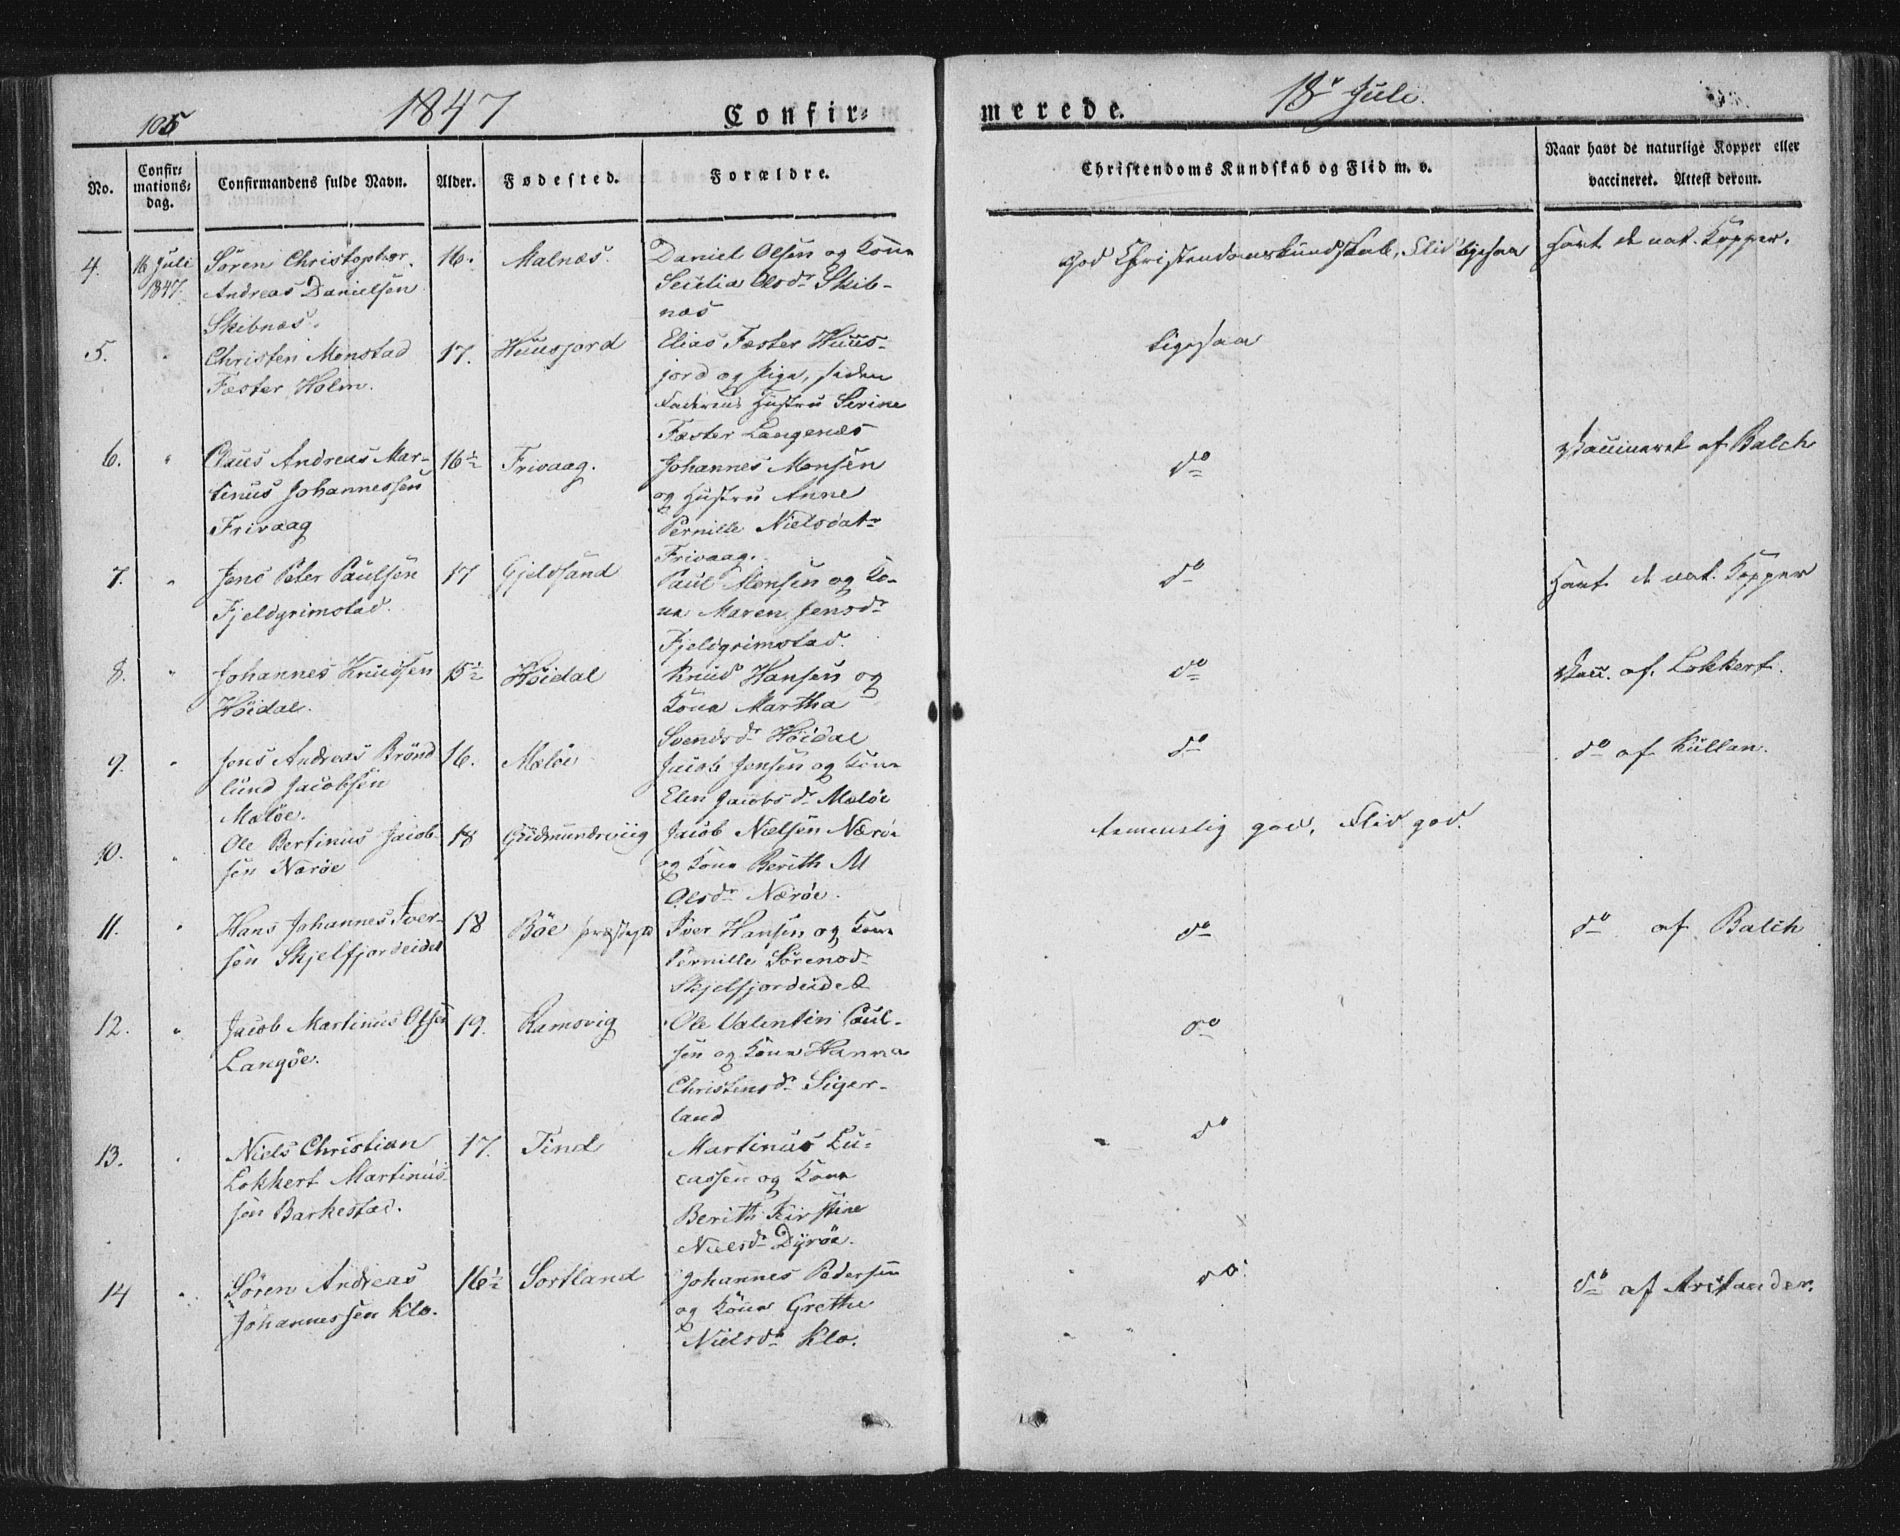 105
1847
Confir-
merede.
18r Juli.
No.
Confir-
mations-
dag.
Confirmandens fulde Navn.
Alder.
Fødested.
Forældre.
Christendoms Kundskab og Flid m. v.
Naar havt de naturlige Kopper eller
vaccineret. Attest derom.
4.
16 Juli
1847.
Søren Christopher
Andreas Danielsen
Skibnæs.
16.
Malnæs.
Daniel Olsen og Kone
Secilia Olsdr Skib-
næs
God Christendomskundskab, Flid ligesaa
Havt de nat. Kopper.
5.
"
Christen Monstad
Fæster Holm.
17.
Huusjord
Elias Fæster Huus-
jord og Pige, siden
Faderens Hustru Serine
Fæster Langenæs
Ligesaa
6.
"
Claus Andreas Mar-
tinus Johannessen
Frivaag
16½
Frivaag.
Johannes Monsen
og Hustru Anne
Pernille Nielsdatr
Frivaag.
do
Vaccineret af Balch
7.
"
Jens Peter Paulsen
Fjeldgrimstad.
17
Gjeldsand
Paul Monsen og Ko-
ne Maren Jensdr
Fjeldgrimstad.
do
Havt de nat. Kopper
8.
"
Johannes Knudsen
Høidal.
15½
Høidal
Knud Hansen og
Kone Martha
Svendsdr Høidal
do
Vacc. af Lokkert.
9.
"
Jens Andreas Brønd
lund Jacobsen
Maløe.
16.
Maløe
Jacob Jensen og Kone
Elen Jacobsdr Maløe
do
do af Kullan.
10.
"
Ole Bertinus Jacob-
sen Narøe
18
Gudmundsviig
Jacob Nielsen Nærøe
og Kone Berith M
Olsdr Nærøe.
temmelig god, Flid god.
11.
"
Hans Johannes Iver-
sen Skjelfjordeidet
18
Bøe præstegjd
Iver Hansen og Kone
Pernille Sørensdr
Skjelfjordeidet
do
do af Balch
12.
"
Jacob Martinus Olsen
Langøe.
19.
Ramsvig
Ole Valentin Paul-
sen og Kone Hanna
Christensdr Siger-
land
do
13.
"
Niels Christian
Lokkert Martinus-
sen Barkestad.
17.
Tind
Martinus Lu-
cassen og Kone
Berith Kirstine
Nielsdr Dyrøe.
do
14
"
Søren Andreas
Johannessen Klo.
16½
Sortland
Johannes Pedersen
og Kone Grethe
Nielsdr Klo.
do
do af Aristander.